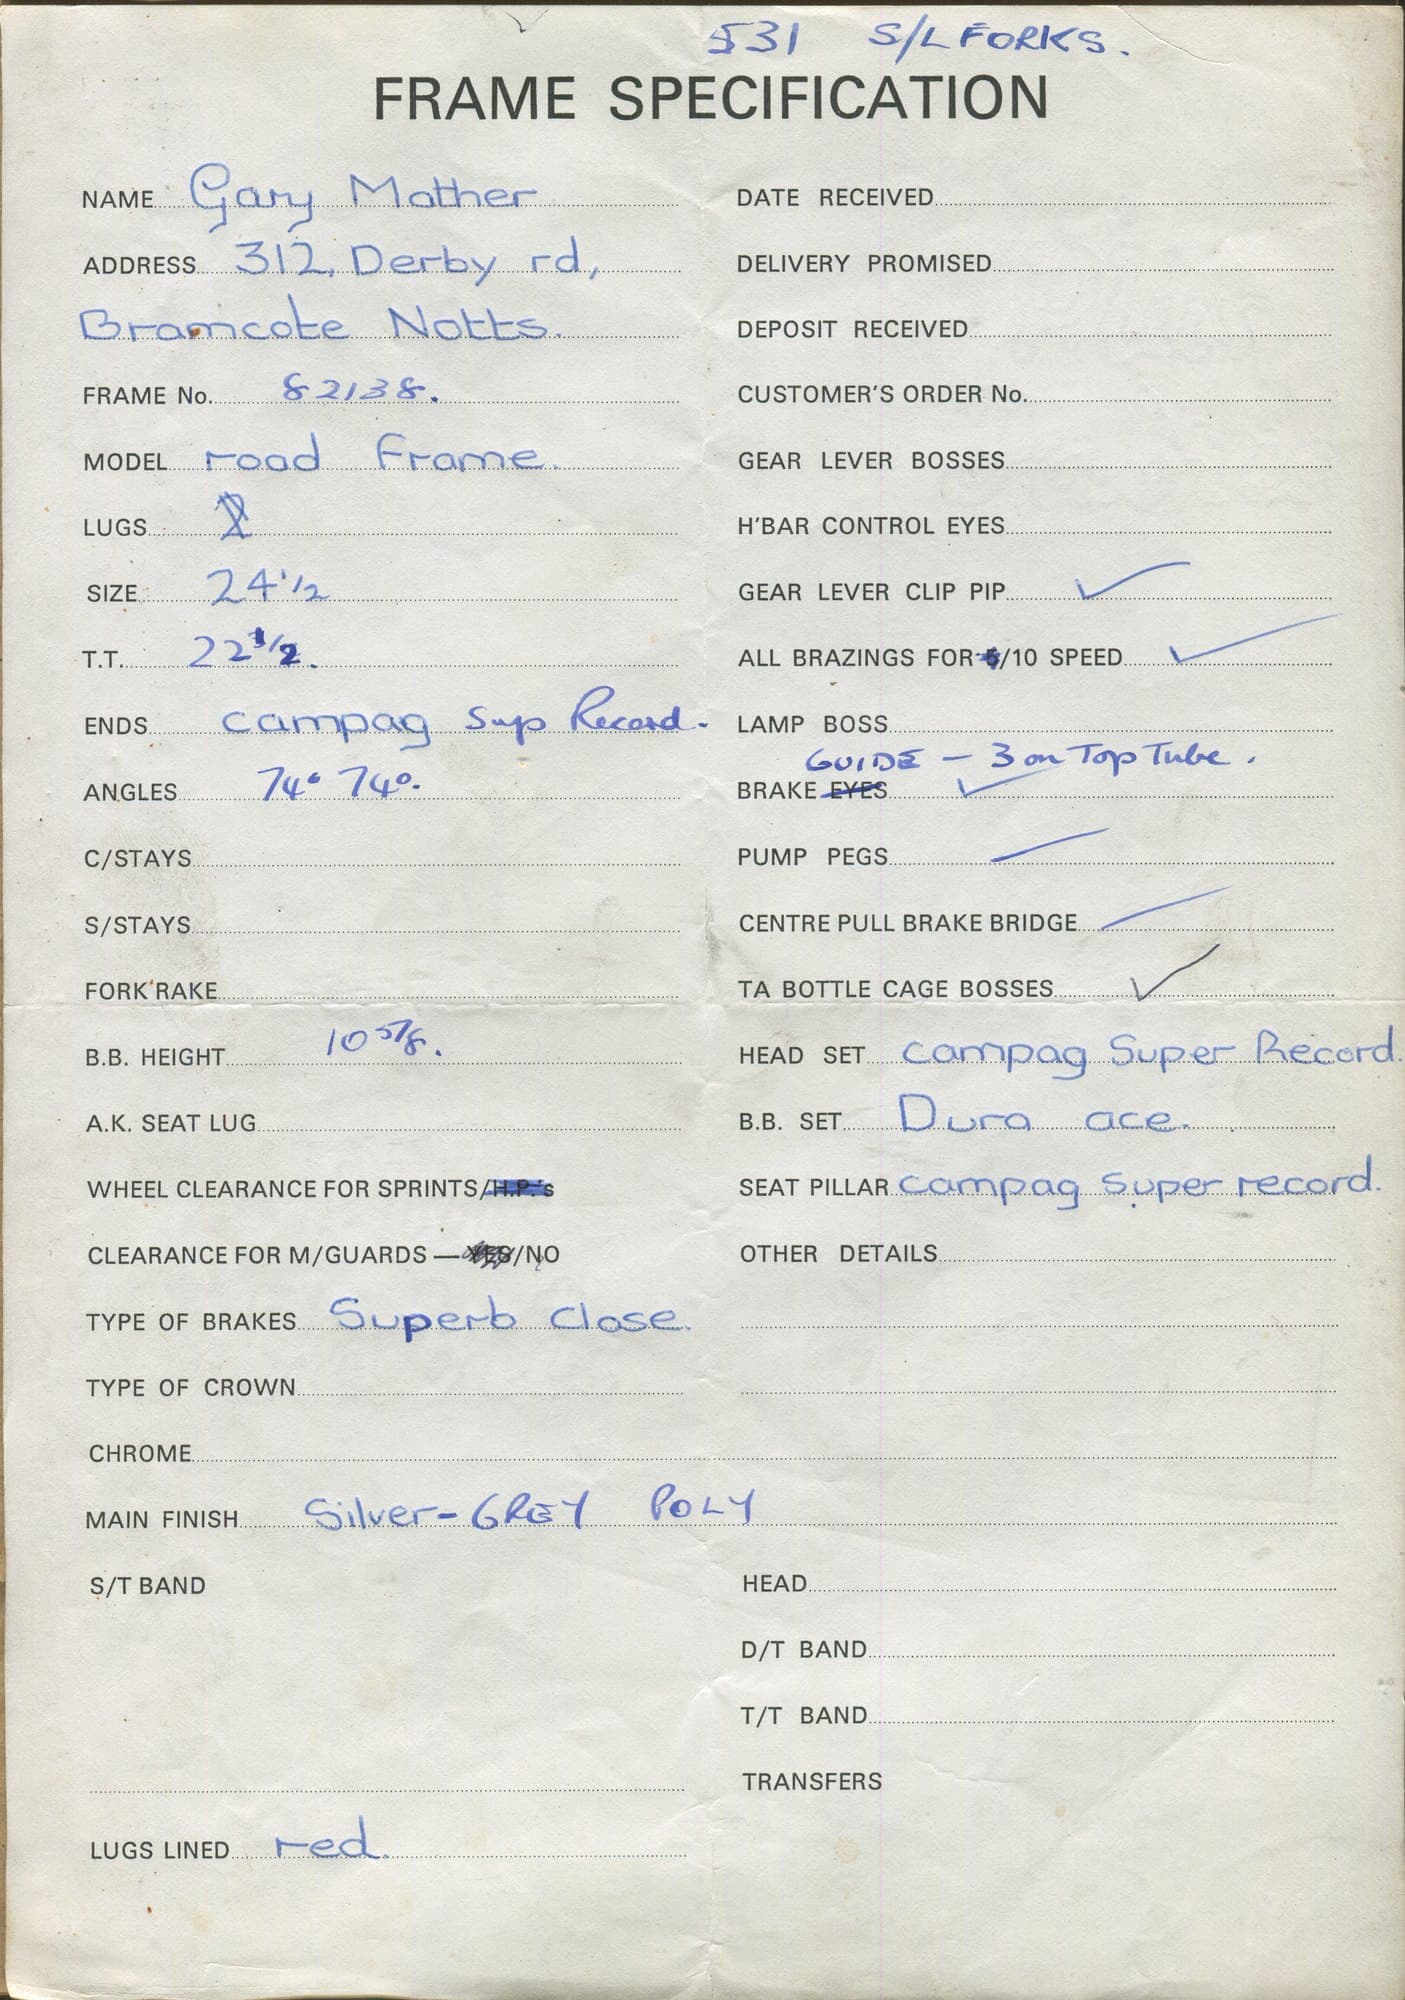 531 S/L FORKS.
FRAME SPECIFICATION
NAME Gary Mather
ADDRESS 312, Derby rd,
Bramcote Notts.
FRAME No. 82138.
MODEL road frame.
LUGS
SIZE 24 1/2
T.T. 22 1/2.
ENDS campag Sup Record.
ANGLES 74° 74°.
C/STAYS
S/STAYS
FORK RAKE
B.B. HEIGHT 10 5/8.
A.K. SEAT LUG
WHEEL CLEARANCE FOR SPRINTS/H.P.'s
CLEARANCE FOR M/GUARDS — YES/NO
TYPE OF BRAKES Superb close.
TYPE OF CROWN
CHROME
MAIN FINISH Silver-GREY POLY
S/T BAND
LUGS LINED red.
DATE RECEIVED
DELIVERY PROMISED
DEPOSIT RECEIVED
CUSTOMER'S ORDER No.
GEAR LEVER BOSSES
H'BAR CONTROL EYES
GEAR LEVER CLIP PIP ✓
ALL BRAZINGS FOR 5/10 SPEED ✓
LAMP BOSS
GUIDE — 3 on Top Tube.
BRAKE EYES ✓
PUMP PEGS
CENTRE PULL BRAKE BRIDGE
TA BOTTLE CAGE BOSSES ✓
HEAD SET campag Super Record.
B.B. SET Dura ace.
SEAT PILLAR campag Super record.
OTHER DETAILS
HEAD
D/T BAND
T/T BAND
TRANSFERS